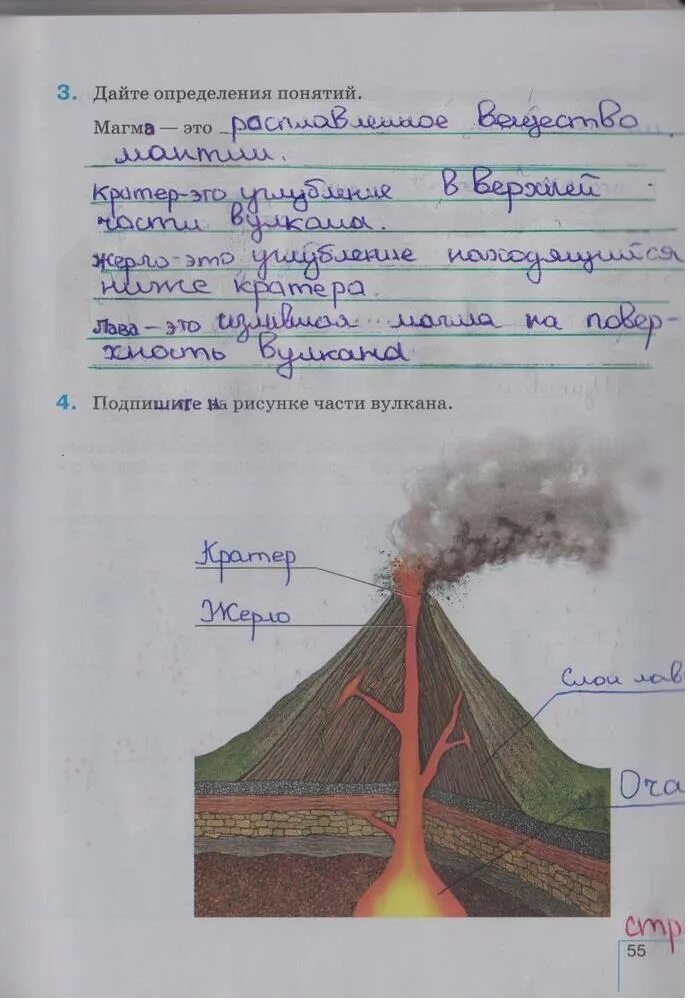 3. Дайте определения понятий.
Магма — это расплавленное вещество
мантии.
Кратер-это углубление в верхней
части вулкана.
Жерло-это углубление находящийся
ниже кратера.
Лава — это излившая магма на повер-
хность вулкана
4. Подпишите на рисунке части вулкана.
Кратер
Жерло
Слои лав
Оча
стр
55